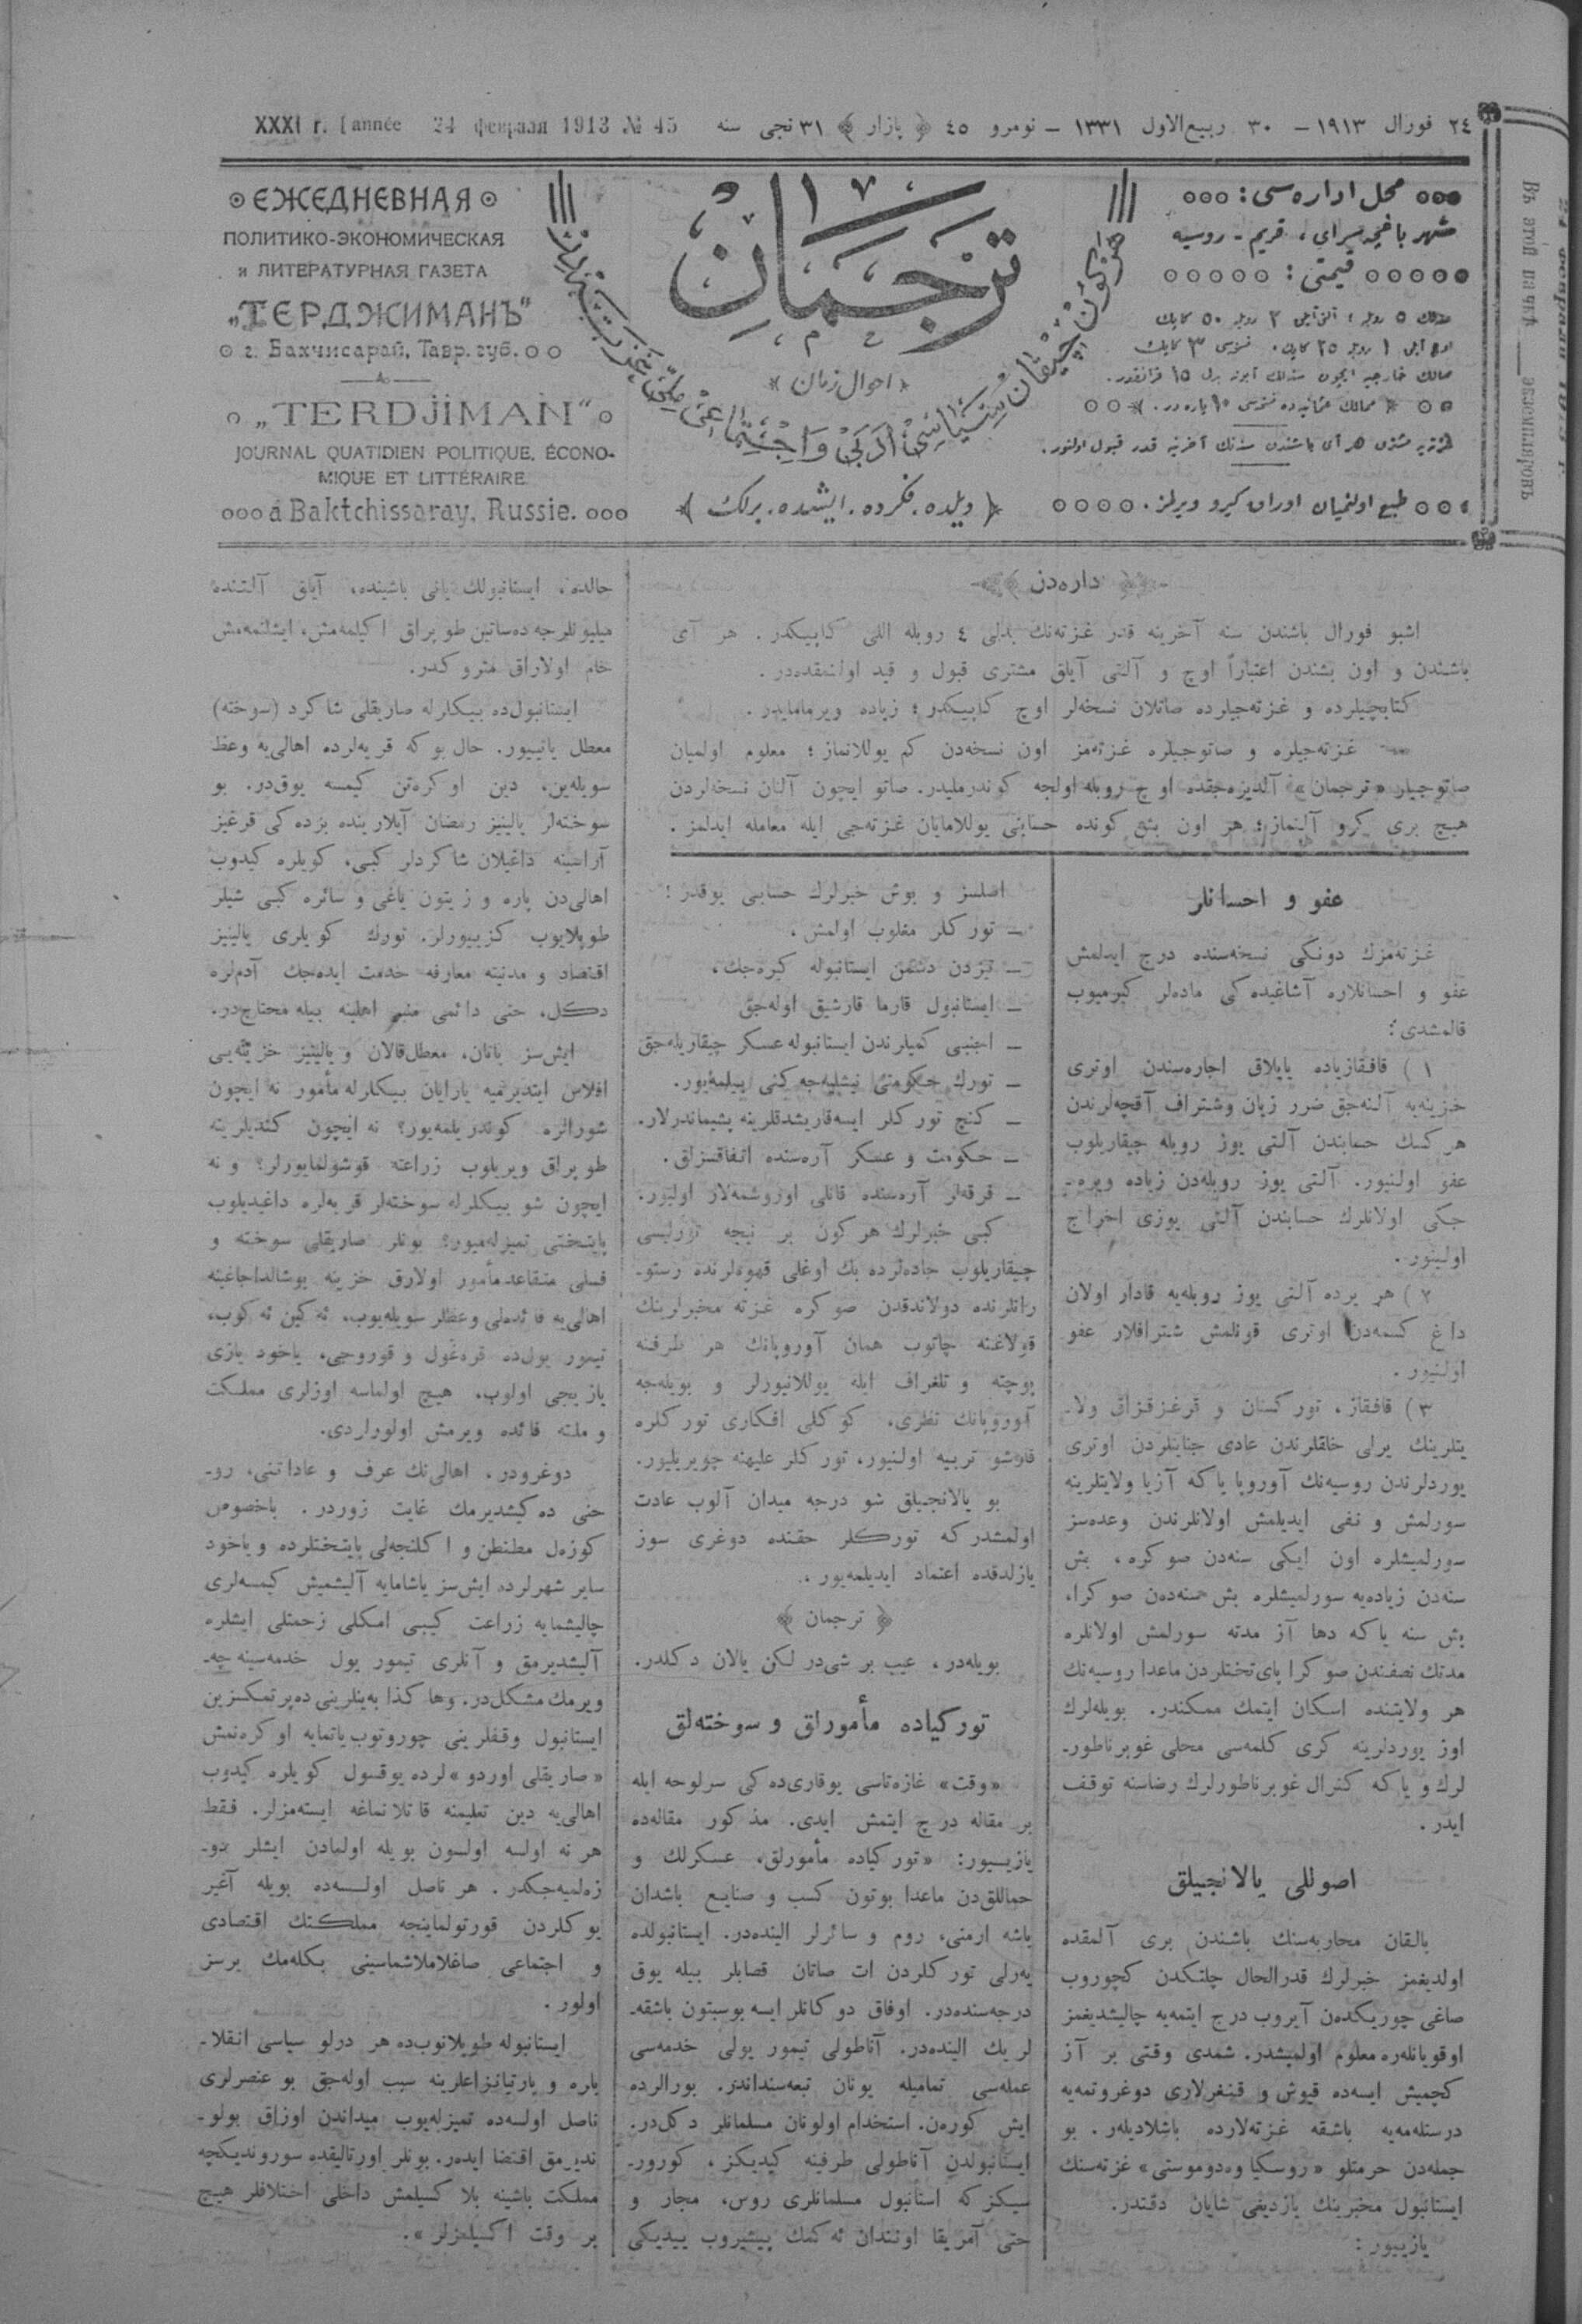 ٢٤ فورال ١٩١٣ — ٣٠ ربيع‌الاول ١٣٣١ — نومرو ٤٥ ﴿ بازار ﴾ ٣١ نجی سنه
24 февраля 1913 № 45
XXXI г. année
محل اداره‌سی:
شهر باغچه‌سرای، قریم ـ روسیه
قیمتی:
سنه‌لك ٥ روبله؛ آلتی آیلق ٣ روبله ٥٠ كاپك
اوچ آیلق ١ روبله ٢٥ كاپك. نسخه‌سی ٣ كاپك
ممالك خارجیه ایچون سنه‌لك آبونه بدلی ١٥ فرانقدر.
ممالك عثمانیه‌ده نسخه‌سی ١٠ پاره‌در.
طبع اولنمیان اوراق كیرو ویرلمز.
ترجمان
احوال زمان
﴿ دیلده. فكرده. ایشده. برلك ﴾
ЕЖЕДНЕВНАЯ
ПОЛИТИКО-ЭКОНОМИЧЕСКАЯ
и ЛИТЕРАТУРНАЯ ГАЗЕТА
„ТЕРДЖИМАНЪ"
г. Бахчисарай, Тавр. губ.
„TERDJIMAN"
JOURNAL QUATIDIEN POLITIQUE, ÉCONO-
MIQUE ET LITTÉRAIRE
á Baktchissaray, Russie.
Въ этой пачкѣ ___ экземпляровъ
اداره‌دن
اشبو فورال باشندن سنه آخرینه قدر غزته‌نك بدلی ٤ روبله اللی كاپیكدر. هر آی
باشندن و اون بشندن اعتباراً اوچ و آلتی آیلق مشتری قبول و قید اولنمقده‌در.
كتابچیلرده و غزته‌جیلرده صاتلان نسخه‌لر اوچ كاپیكدر؛ زیاده ویرمامایدر.
غزته‌جیلره و صاتوجیلره غزته‌مز اون نسخه‌دن كم یوللانماز؛ معلوم اولمیان
صاتوجیلر «ترجمان» آلدیزه‌جقده اوچ روبله اولجه كوندرملیدر. صاتو ایچون آلنان نسخه‌لردن
هیچ بری كرو آلنماز؛ هر اون بش كونده حسابنی یوللامایان غزته‌جی ایله معامله ایدلمز.
عفو و احسانلر
غزته‌مزك دونكی نسخه‌سنده درج ایدلمش
عفو و احسانلاره آشاغیده‌كی ماده‌لر كیرمیوب
قالمشدی:
١) قافقازیاده یایلاق اجاره‌سندن اوتری
خزینه‌یه آلنه‌جق ضرر زیان وشتراف آقچه‌لرندن
هر كسك حسابندن آلتی یوز روبله چیقاریلوب
عفو اولنیور. آلتی یوز روبله‌دن زیاده ویره‌ـ
جكی اولانلرك حسابندن آلتی یوزی اخراج
اولنیور.
٢) هر یرده آلتی یوز روبله‌یه قادار اولان
داغ كسمه‌دن اوتری قونلمش شترافلار عفو
اولنیور.
٣) قافقاز، توركستان و قرغزقزاق ولاـ
یتلرینك یرلی خلقلرندن عادی جنایتلردن اوتری
یوردلرندن روسیه‌نك آوروپا یاكه آزیا ولایتلرینه
سورلمش و نفی ایدیلمش اولانلرندن وعده‌سز
سورلمیشلره اون ایكی سنه‌دن صوكره، بش
سنه‌دن زیاده‌یه سورلمیشلره بش سنه‌دن صوكرا،
بش سنه یاكه دها آز مدته سورلمش اولانلره
مدتك نصفندن صوكرا پای‌تختلردن ماعدا روسیه‌نك
هر ولایتنده اسكان ایتمك ممكندر. بویله‌لرك
اوز یوردلرینه كری كلمه‌سی محلی غوبرناطورـ
لرك و یاكه كنرال غوبرناطورلرك رضاسنه توقف
ایدر.
اصوللی یالانجیلق
بالقان محاربه‌سنك باشندن بری آلمقده
اولدیغمز خبرلرك قدرالحال چلتكدن كچوروب
صاغی چوریكدن آیروب درج ایتمه‌یه چالیشدیغمز
اوقویانلره معلوم اولمیشدر. شمدی وقتی بر آز
كچمیش ایسه‌ده قیوش و قینغرلاری دوغروتمه‌یه
درستله‌مه‌یه باشقه غزته‌لارده باشلادیلر. بو
جمله‌دن حرمتلو «روسكیا وه‌دوموستی» غزته‌سنك
ایستانبول مخبرینك یازدیغی شایان دقتدر.
یازییور:
اصلسز و بوش خبرلرك حسابی یوقدر:
— توركلر مغلوب اولمش،
دشمن ایستانبوله كیره‌جك،
— ایستانبول قارما قارشیق اوله‌جق
— اجنبی كمیلرندن ایستانبوله عسكر چیقاریله‌جق
— تورك حكومتی نیشلیه‌جه‌كنی بیلمه‌یور.
— كنج توركلر ایسه‌قاریشدقلرینه پشیماندرلار.
— حكومت و عسكر آره‌سنده اتفاقسزلق.
— فرقه‌لر آره‌سنده قانلی اوروشمه‌لار اولیور.
كبی خبرلرك هر كون بر نیچه تورلیسی
چیقاریلوب جاده‌لرده بك اوغلی قهوه‌لرنده رستوـ
رانلرنده دولاندقدن صوكره غزته مخبرلرینك
قولاغنه چاتوب همان آوروپانك هر طرفنه
پوچته و تلغراف ایله یوللانیورلر و بویله‌جه
آوروپانك نظری، كوكلی افكاری توركلره
قارشو تربیه اولنیور، توركلر علیهنه چویریلیور.
بو یالانجیلق شو درجه میدان آلوب عادت
اولمشدركه توركلر حقنده دوغری سوز
یازلدقده اعتماد ایدیلمه‌یور.
﴿ ترجمان ﴾
بویله‌در، عیب بر شی‌در لكن یالان دكلدر.
توركیاده مأمورلق و سوخته‌لق
«وقت» غازه‌تاسی یوقاری‌ده‌كی سرلوحه ایله
بر مقاله درج ایتمش ایدی. مذكور مقاله‌ده
یازییور: «توركیاده مأمورلق، عسكرلك و
حماللق‌دن ماعدا بوتون كسب و صنایع باشدان
باشه ارمنی، روم و سائرلر الینده‌در. ایستانبولده
یه‌رلی توركلردن ات صاتان قصابلر بیله یوق
درجه‌سنده‌در. اوفاق دوكانلر ایسه بوسبتون باشقه‌ـ
لریك الینده‌در. آناطولی تیمور یولی خدمه‌سی
عمله‌سی تمامیله یونان تبعه‌سنداندر. بورالرده
ایش كورن. استخدام اولونان مسلمانلر دكل‌در.
ایستانبولدن آناطولی طرفینه كیدیكز، كورورـ
سیكزكه استانبول مسلمانلری روس، مجار و
حتی آمریقا اونندان ئه‌كمك پیشیروب ییدیكی
حالده، ایستانبولك یانی باشینده، آیاق آلتنده
میلیونلرجه ده‌ساتین طوپراق اكیلمه‌مش، ایشلنمه‌مش
خام اولاراق متروكدر.
ایستانبول‌ده بیكلرله صاریقلی شاكرد (سوخته)
معطل یاتییور. حال بوكه قریه‌لرده اهالی‌یه وعظ
سویله‌ین، دین اوكره‌تن كیمسه یوق‌در. بو
سوخته‌لر یالینیز رمضان آیلارینده بزده‌كی قرغیز
آراسینه داغیلان شاكردلر كبی، كویلره كیدوب
اهالی‌دن پاره و زیتون یاغی و سائره كبی شیلر
طوپلایوب كزییورلر. تورك كویلری یالینیز
اقتصاد و مدنیته معارفه خدمت ایده‌جك آدم‌لره
دكل، حتی دائمی منبر اهلینه بیله محتاج‌در.
ایش‌سز یاتان، معطل‌قالان و یالینیز خزینه‌یی
افلاس ایتدیرمیه یارایان بیكلرله مأمور نه ایچون
شورالره كوندریلمه‌یور؟ نه ایچون كندیلرینه
طوپراق ویریلوب زراعته قوشولمایورلر؟ و نه
ایچون شو بیكلرله سوخته‌لر قریه‌لره داغیدیلوب
پایتختی تمیزله‌میور؟ بونلر صاریقلی سوخته و
فسلی متقاعد مأمور اولارق خزینه بوشالداجاغینه
اهالی‌یه فائده‌لی وعظلر سویله‌یوب، ئه‌كین ئه‌كوب،
تیمور یول‌ده قره‌غول و قوروجی، یاخود یازی
یازیجی اولوب، هیچ اولماسه اوزلری مملكت
و ملته فائده ویرمش اولورلردی.
دوغرودر، اهالی‌نك عرف و عاداتنی، روـ
حنی ده‌كیشدیرمك غایت زوردر. باخصوص
كوزه‌ل مطنطن و اكلنجه‌لی پایتختلرده و یاخود
سایر شهرلرده ایش‌سز یاشامایه آلیشمیش كیمسه‌لری
چالیشمایه زراعت كیبی امكلی زحمتلی ایشلره
آلیشدیرمق و آنلری تیمور یول خدمه‌سینه چه‌ـ
ویرمك مشكل‌در. وهاكذا به‌ینلرینی ده‌پرتمكسزین
ایستانبول وقفلرینی چوروتوب یاتمایه اوكره‌نمش
«صاریقلی اوردو»لرده یوقسول كویلره كیدوب
اهالی‌یه دین تعلیمنه قاتلانماغه ایسته‌مزلر. فقط
هر نه اولسه اولسون بویله اولمادن ایشلر دوـ
زه‌لمیه‌جكدر. هر ناصل اولسه‌ده بویله آغیر
یوكلردن قورتولماینجه مملكتك اقتصادی
و اجتماعی صاغلاملاشماسینی بكله‌مك یرسز
اولور.
ایستانبوله طوپلانوب‌ده هر درلو سیاسی انقلاـ
بلره و پارتیا نزاعلرینه سبب اوله‌جق بو عنصرلری
ناصل اولسه‌ده تمیزله‌یوب میداندن اوزاق بولوـ
ندیرمق اقتضا ایدر. بونلر اورتالیقده سوروندیكچه
مملكت باشینه بلا كسیلمش داخلی اختلافلر هیچ
بر وقت اكسیلمزلر».